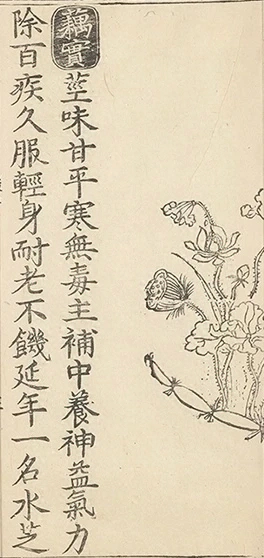 藕實
莖味甘平寒無毒主補中養神益氣力
除百疾久服輕身耐老不饑延年一名水芝